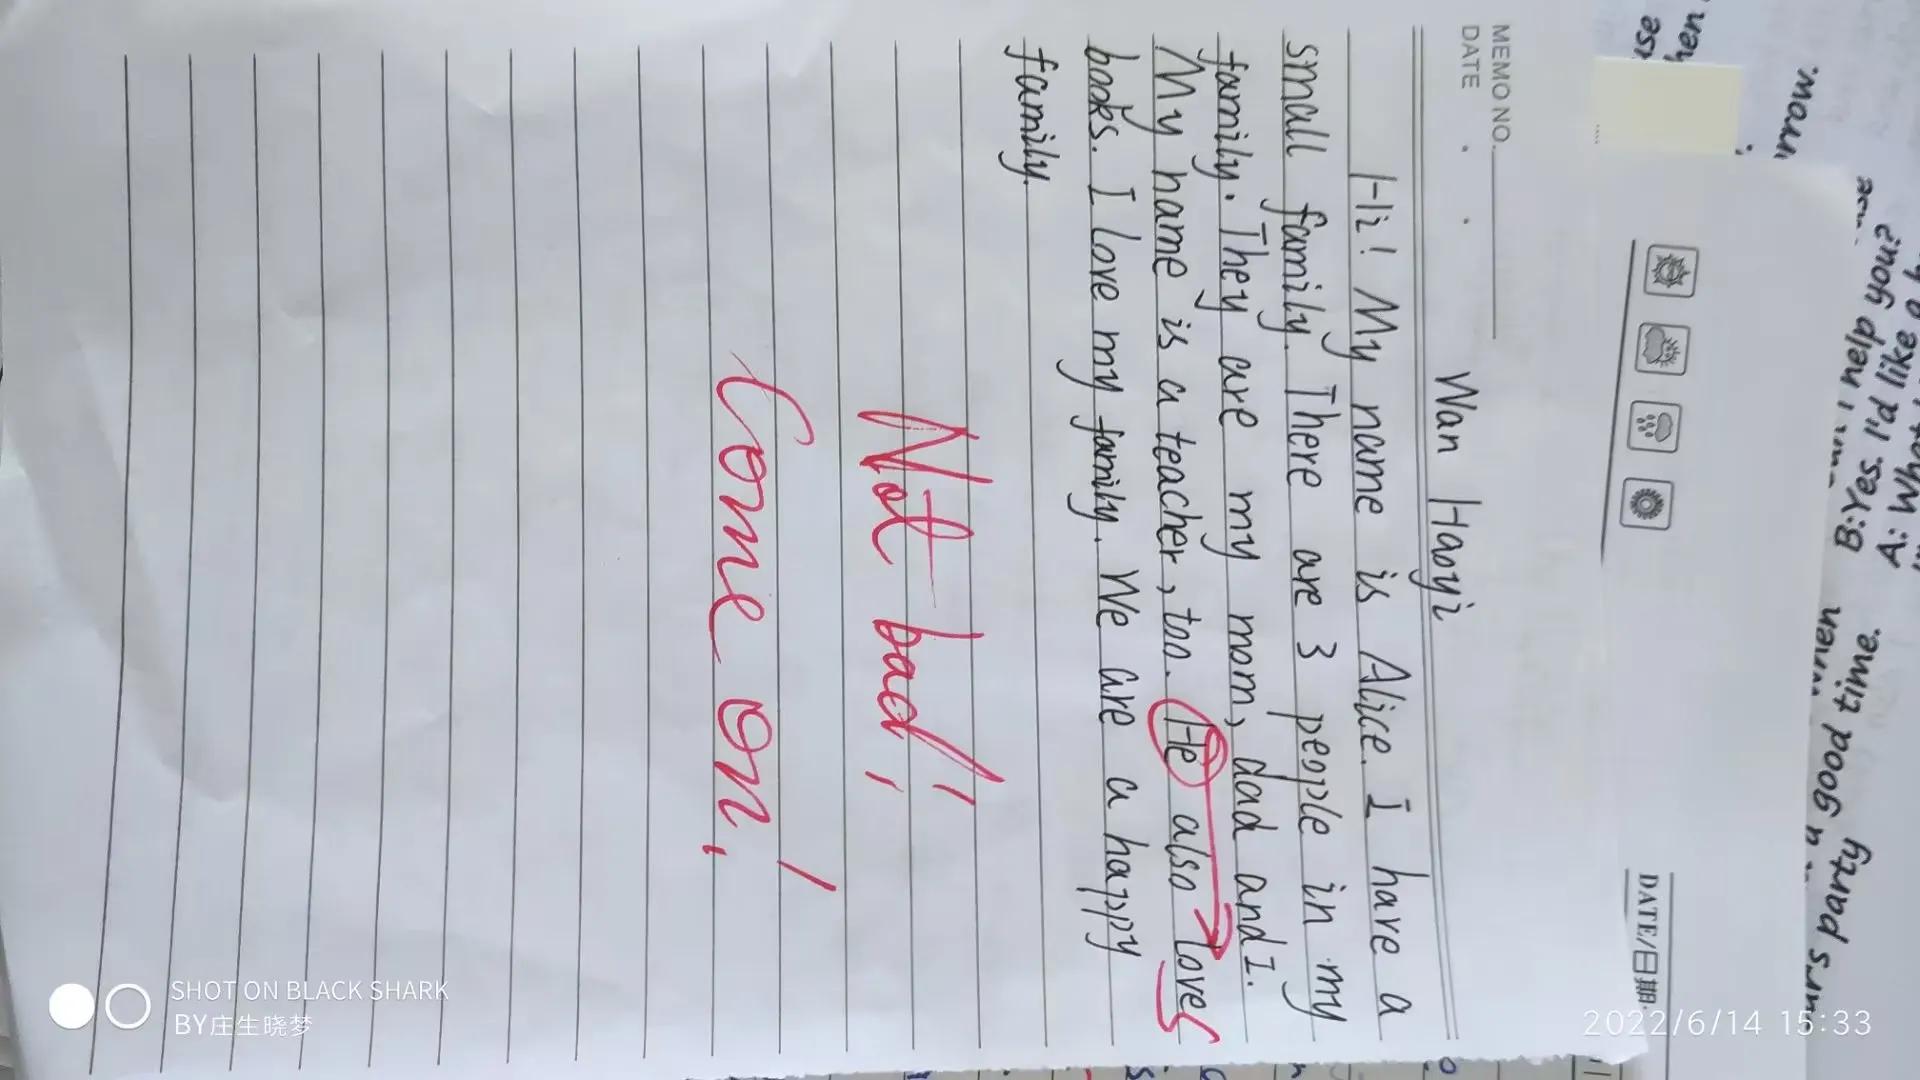 MEMO NO.
DATE
Wan Haoyi
Hi! My name is Alice. I have a
small family. There are 3 people in my
family. They are my mom, dad and I.
My name is a teacher, too. He also loves
books. I love my family. We are a happy
family.
Not bad!
Come on!
DATE/日期
B:Yes. I'd like a
I help you?
good time.
party
SHOT ON BLACK SHARK
BY庄生晓梦
2022/6/14 15:33